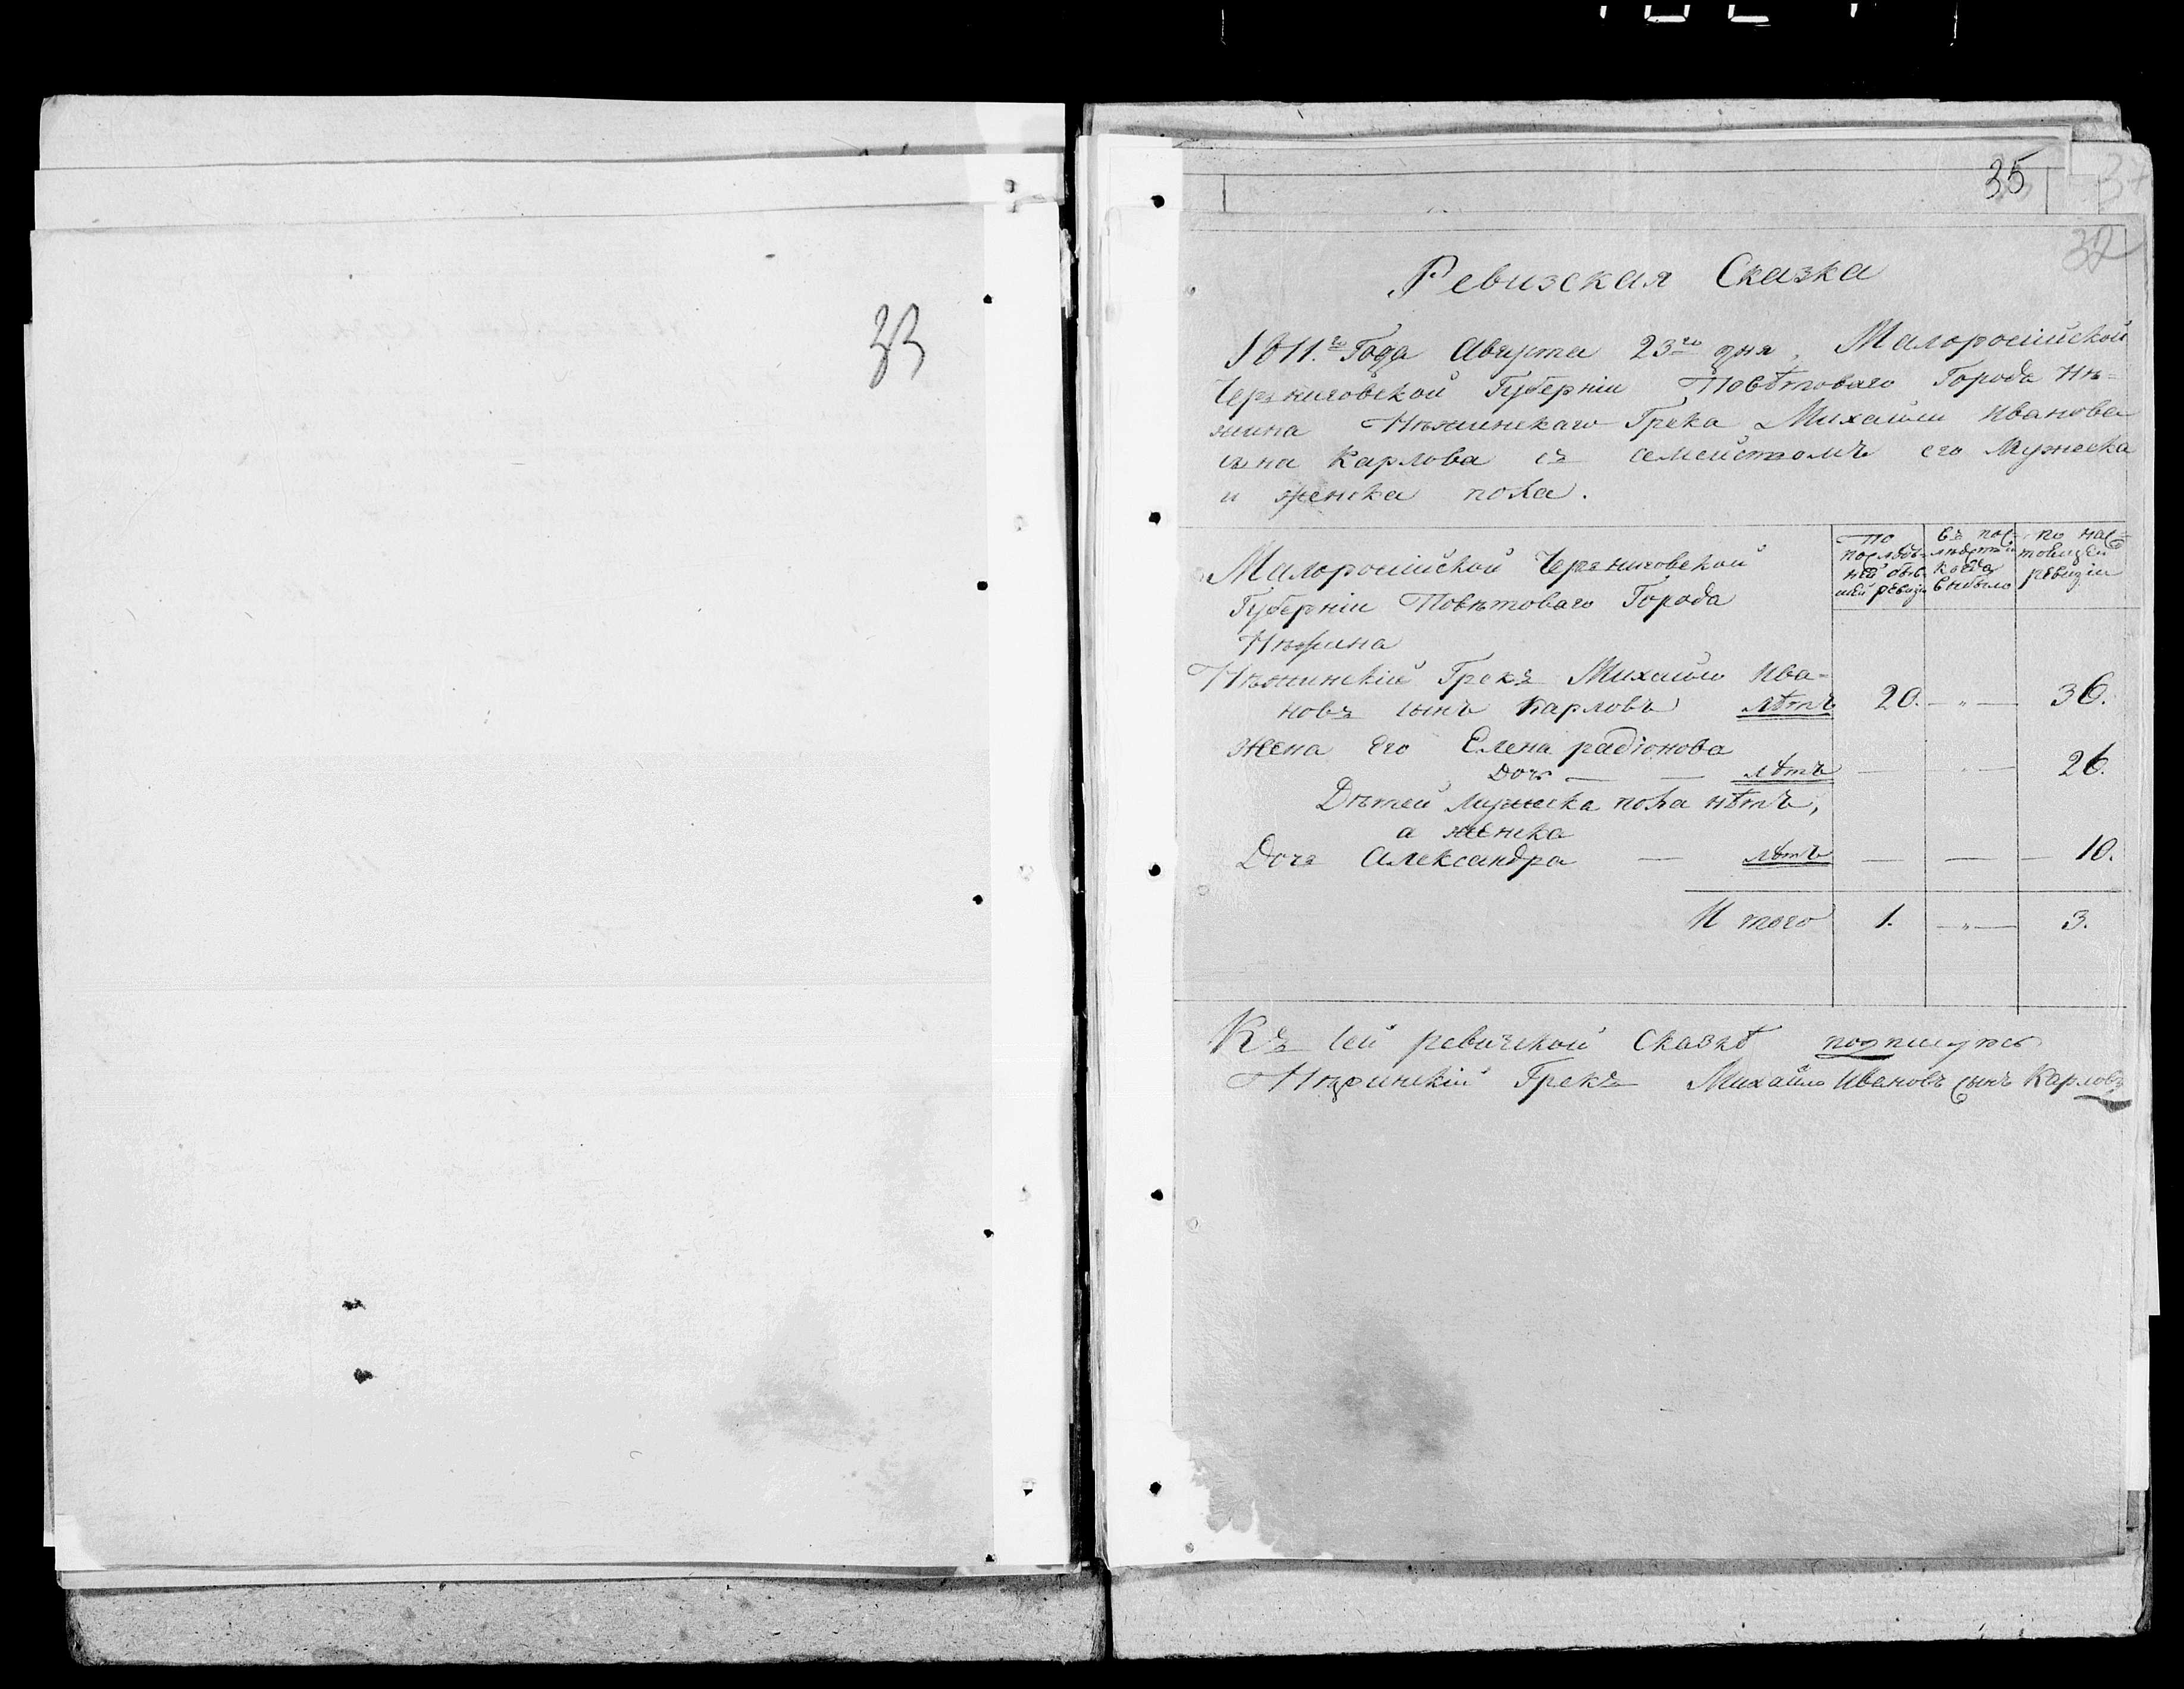 33
35
32
Ревизская Сказка
1811.го Года Августа 23го дня, Малоросійской
Черниговской Губерніи Повѣтоваго Города Нѣ=
жина Нѣжинскаго Грека Михайлы Иванова
сына Карлова съ семействомъ его Мужеска
и женска пола.
Малоросійской Черниговской
Губерніи Повѣтоваго Города
Нѣжина
По послѣд=ней быв=шей ревизіи
Въ послѣдствіи когда выбыло
По настоящей ревизіи
Нѣжинскій Грекъ Михайло Ива=
новъ сынъ Карловъ лѣтъ 20. — „ — 36.
жена его Елена радіонова
Дочь — — лѣтъ — „ — 26.
Дѣтей мужеска пола нѣтъ,
а женска
Дочь Александра — лѣтъ — — — 10.
И того 1. — „ — 3.
Къ сей ревизской Сказкѣ подпишусь
Нѣжинскій Грекъ Михайло Ивановъ сынъ Карловъ